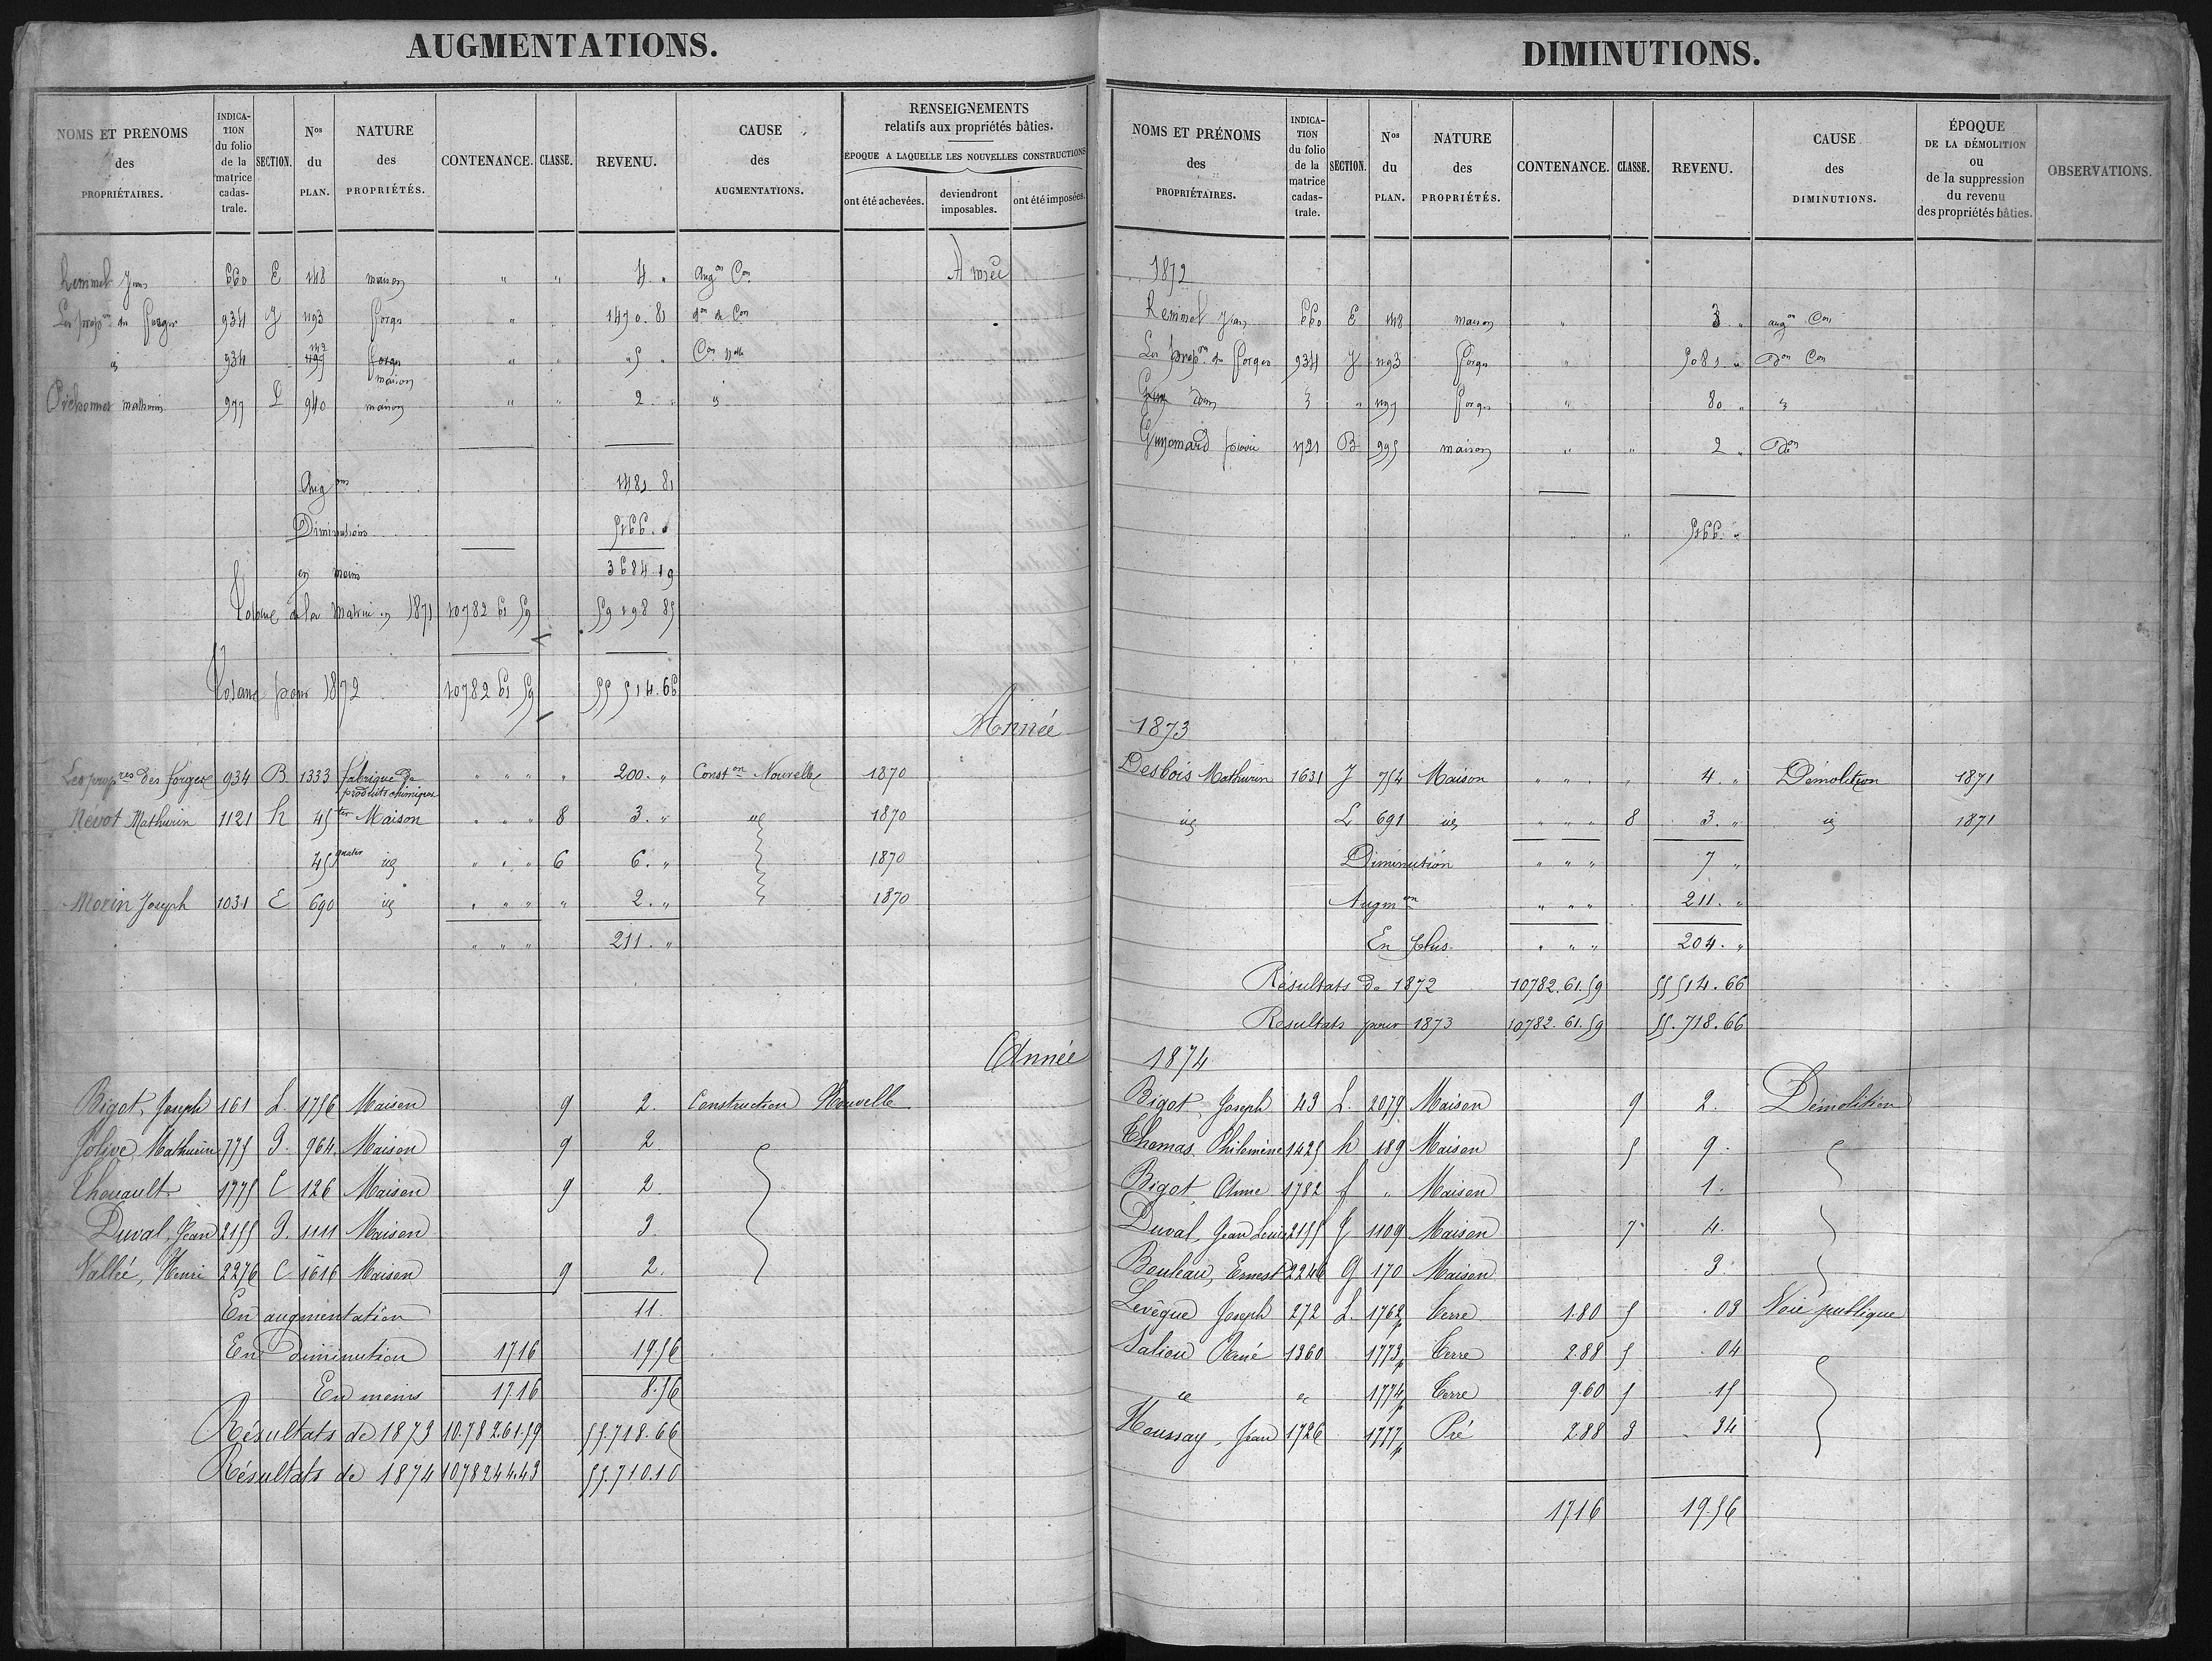 AUGMENTATIONS.
NOMS ET PRÉNOMS des PROPRIÉTAIRES. INDICATION du folio de la matrice cadastrale. SECTION. Nos du PLAN. NATURE des PROPRIÉTÉS. CONTENANCE. CLASSE. REVENU. CAUSE des AUGMENTATIONS. RENSEIGNEMENTS relatifs aux propriétés bâties. ÉPOQUE A LAQUELLE LES NOUVELLES CONSTRUCTIONS ont été achevées. deviendront imposables. ont été imposées.
Année
Remmel Jean 660 E 148 maison " " 4 " Augon Con
Les propres des Forges 934 J 1193 forges " " 1470.81 don de Con
id 934 forges maison " " 5 " Con Nelle
mathurin 977 L 940 maison " " 2 " id
Augons 1481 81
Diminutions 5166 "
en moins 3684 19
Totaux de la matrice 1871 10782 61 59 59198 85
Totaux pour 1872 10782 61 59 55514.66
Année
Les propres des forges 934 B 1333 fabrique de produits chimiques " " " " 200. " Conston Nouvelle 1870
Névot Mathurin 1121 h 45 ter Maison " " " 8 3. " id 1870
45 quater id " " " 6 6. " 1870
Morin Joseph 1031 E 690 id " " " " 2. " 1870
" " " 211. "
Année
Bigot, Joseph 161 L. 1756 Maison 9 2. Construction Nouvelle
Jolive, Mathurin 775 J. 964 Maison 9 2
Chouault 1775 C 126 Maison 9 2.
Duval, Jean 2155 J. 1111 Maison 3
Vallée, Henri 2276 C 1616 Maison 9 2.
En augmentation 11.
En diminution 17.16 19.56
En moins 17.16 8.56
Résultats de 1873 10.782.61.59 55.718.66
Résultats de 1874 10782.44.43 55.710.10
DIMINUTIONS.
NOMS ET PRÉNOMS des PROPRIÉTAIRES. INDICATION du folio de la matrice cadastrale. SECTION. Nos du PLAN. NATURE des PROPRIÉTÉS. CONTENANCE. CLASSE. REVENU. CAUSE des DIMINUTIONS. ÉPOQUE DE LA DÉMOLITION ou de la suppression du revenu des propriétés bâties. OBSERVATIONS.
1872
Remmel Jean 660 E 148 maison " 3 " augon Con
Les propres des Forges 934 J 1193 forges " 5081 " Don Con
" forges " 80 " id
Guyomard 721 B 995 maison " " 2 " Don
" " 5166. "
1873
Desbois Mathurin 1631 J 754 Maison " " " " 4. " Démolition 1871
id L 691 id " " " 8 3. " id 1871
Diminution " " " 7 "
Augmon " " " 211. "
En plus. " " " 204. "
Résultats de 1872 10782.61.59 55514.66
Résultats pour 1873 10782.61.59 55.718.66
1874
Bigot, Joseph 43 L. 2079 Maison 9 2. Démolition
Thomas, Philomène 1425 h 189 Maison 5 9.
Bigot, Anne 1782 f " Maison 1.
Duval, Jean Louis 2155 J 1109 Maison 7 4.
Bouleau, Ernest 2246 G 170 Maison 3.
Levêque Joseph 272 L. 1762p Terre 1.80 5 .03 Voie publique
Saliou René 1360 1773p Terre 2.88 5 .04
id id 1774p Terre 9.60 5 .15
Houssay, Jean 1726 1777p Pré 2.88 3 .34
17.16 19.56